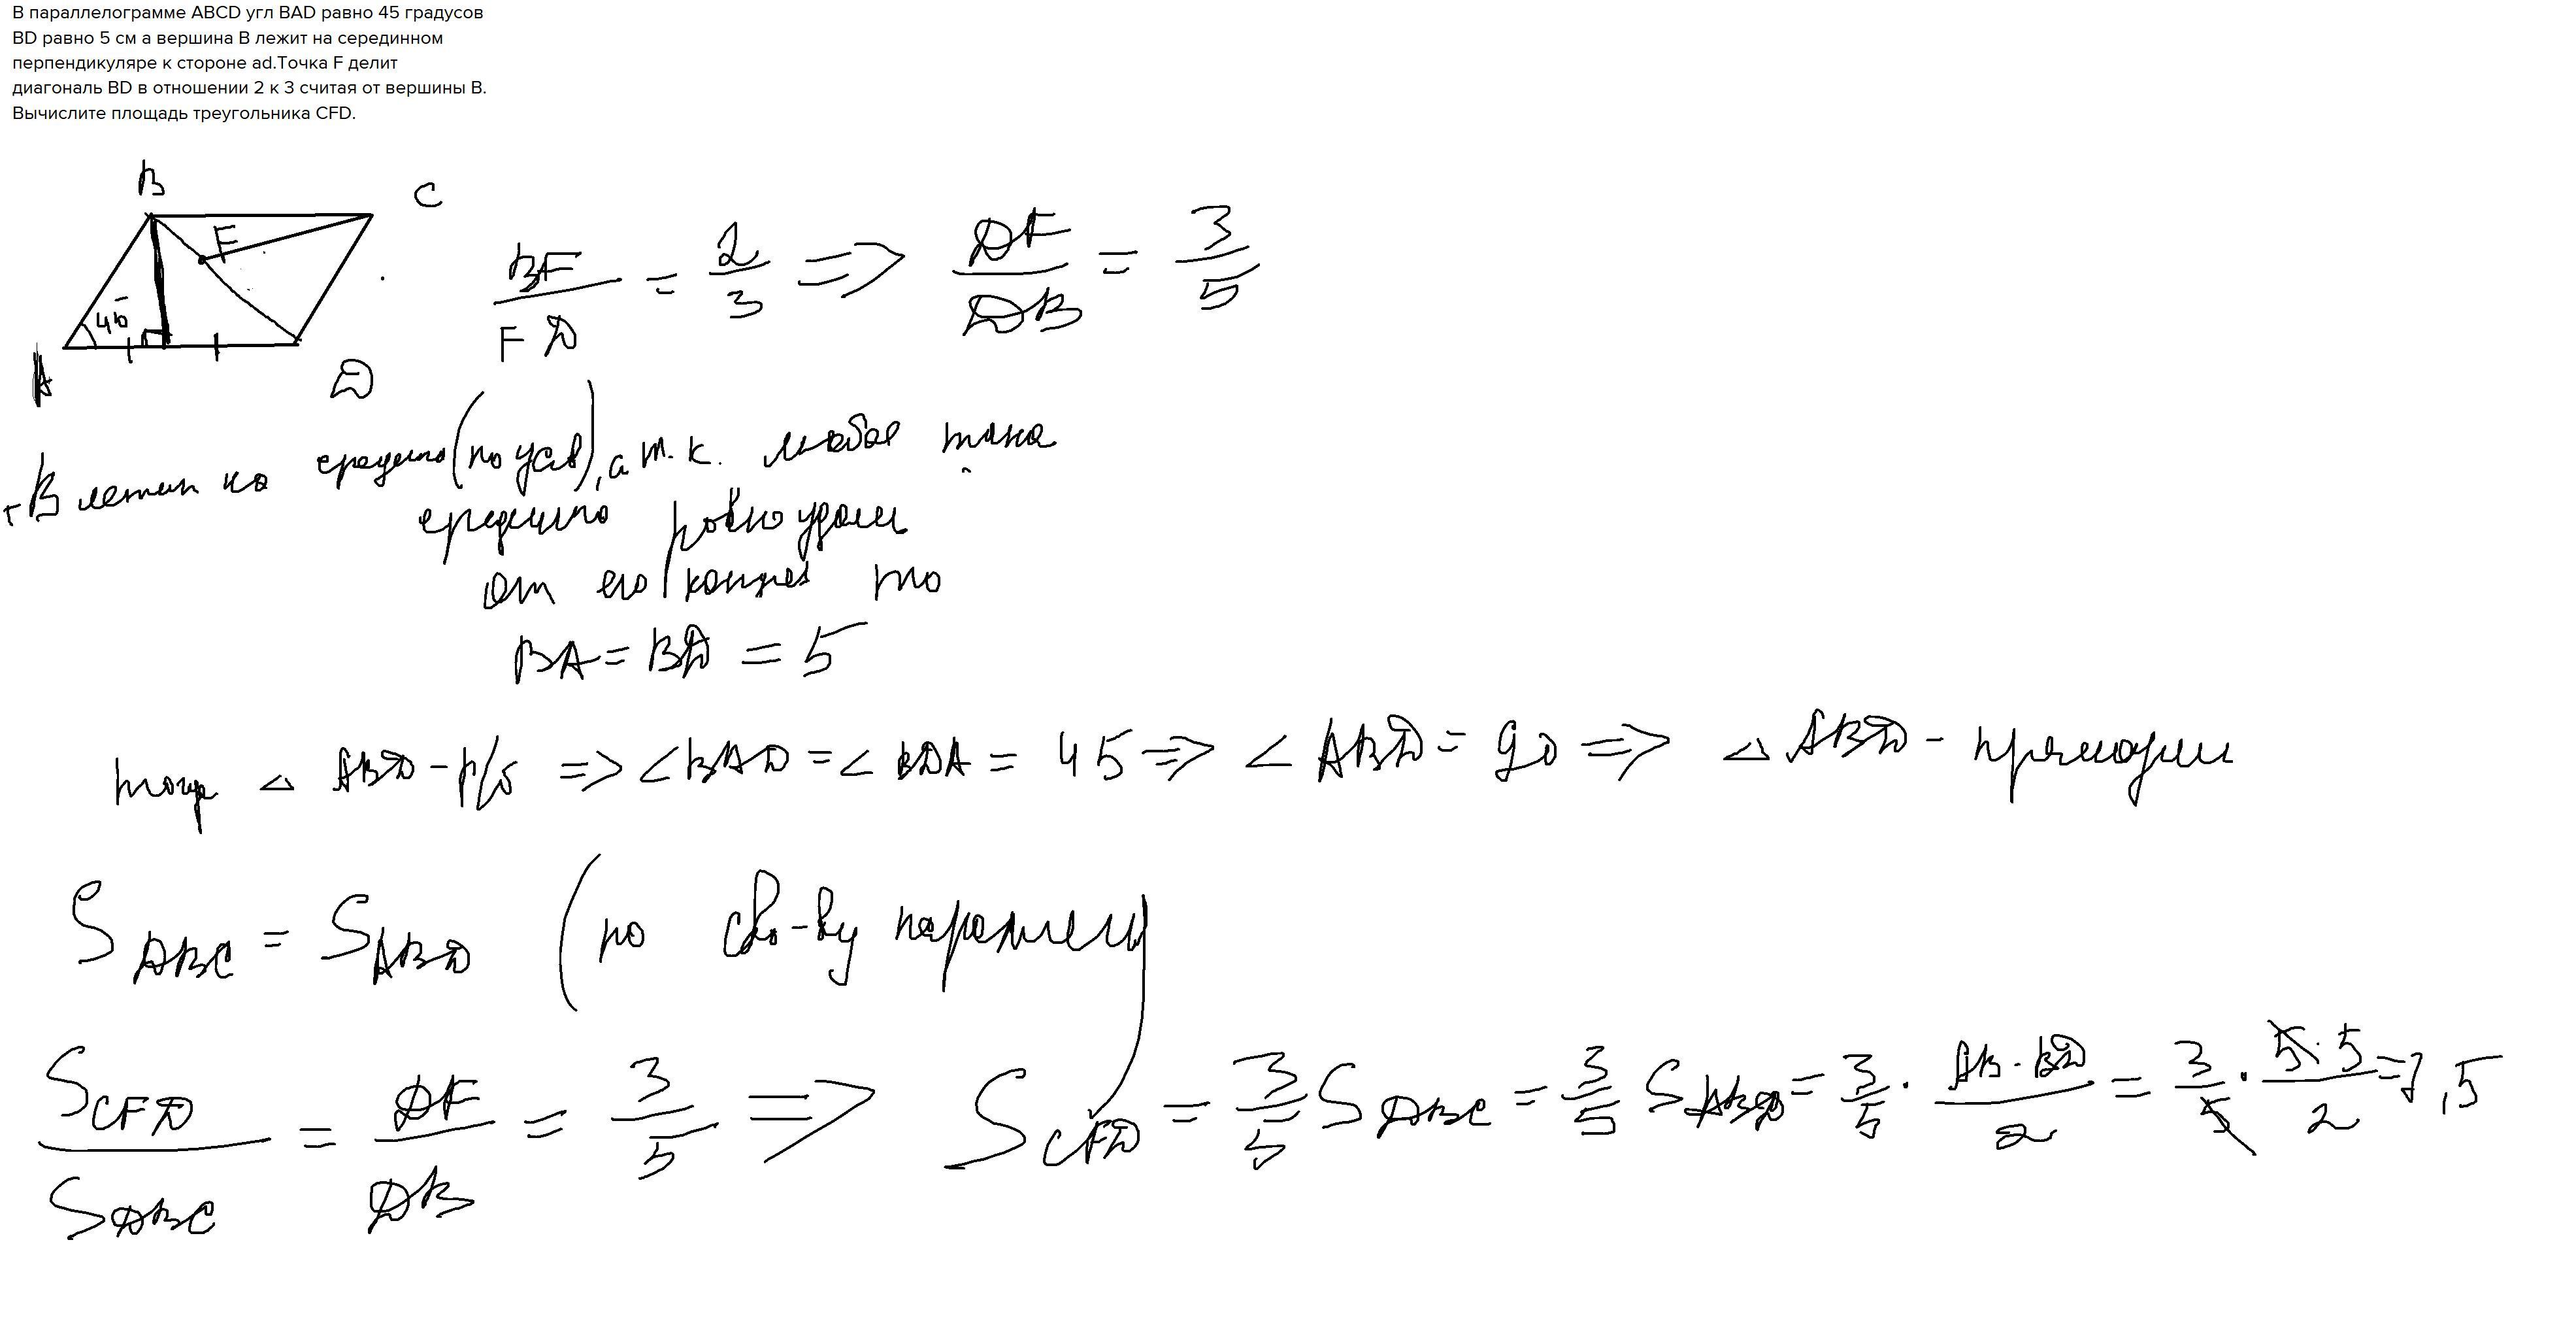 В параллелограмме ABCD угл BAD равно 45 градусов
BD равно 5 см а вершина B лежит на серединном
перпендикуляре к стороне ad.Точка F делит
диагональ BD в отношении 2 к 3 считая от вершины B.
Вычислите площадь треугольника CFD.
B
C
F
45
A
D
BF/FD = 2/3 => DF/DB = 3/5
т B лежит на (по усл), а т.к. любая точка
равноудал
от его концов то
BA = BD = 5
тогда △ ABD - р/б => ∠BAD = ∠BDA = 45 => ∠ABD = 90 => △ ABD - прямоугол
S DBC = S ABD (по св-ву параллел)
S CFD / S DBC = DF/DB = 3/5 => S CFD = 3/5 S DBC = 3/5 S ABD = 3/5 · AB · BD/2 = 3/5 · 5 · 5/2 = 7,5